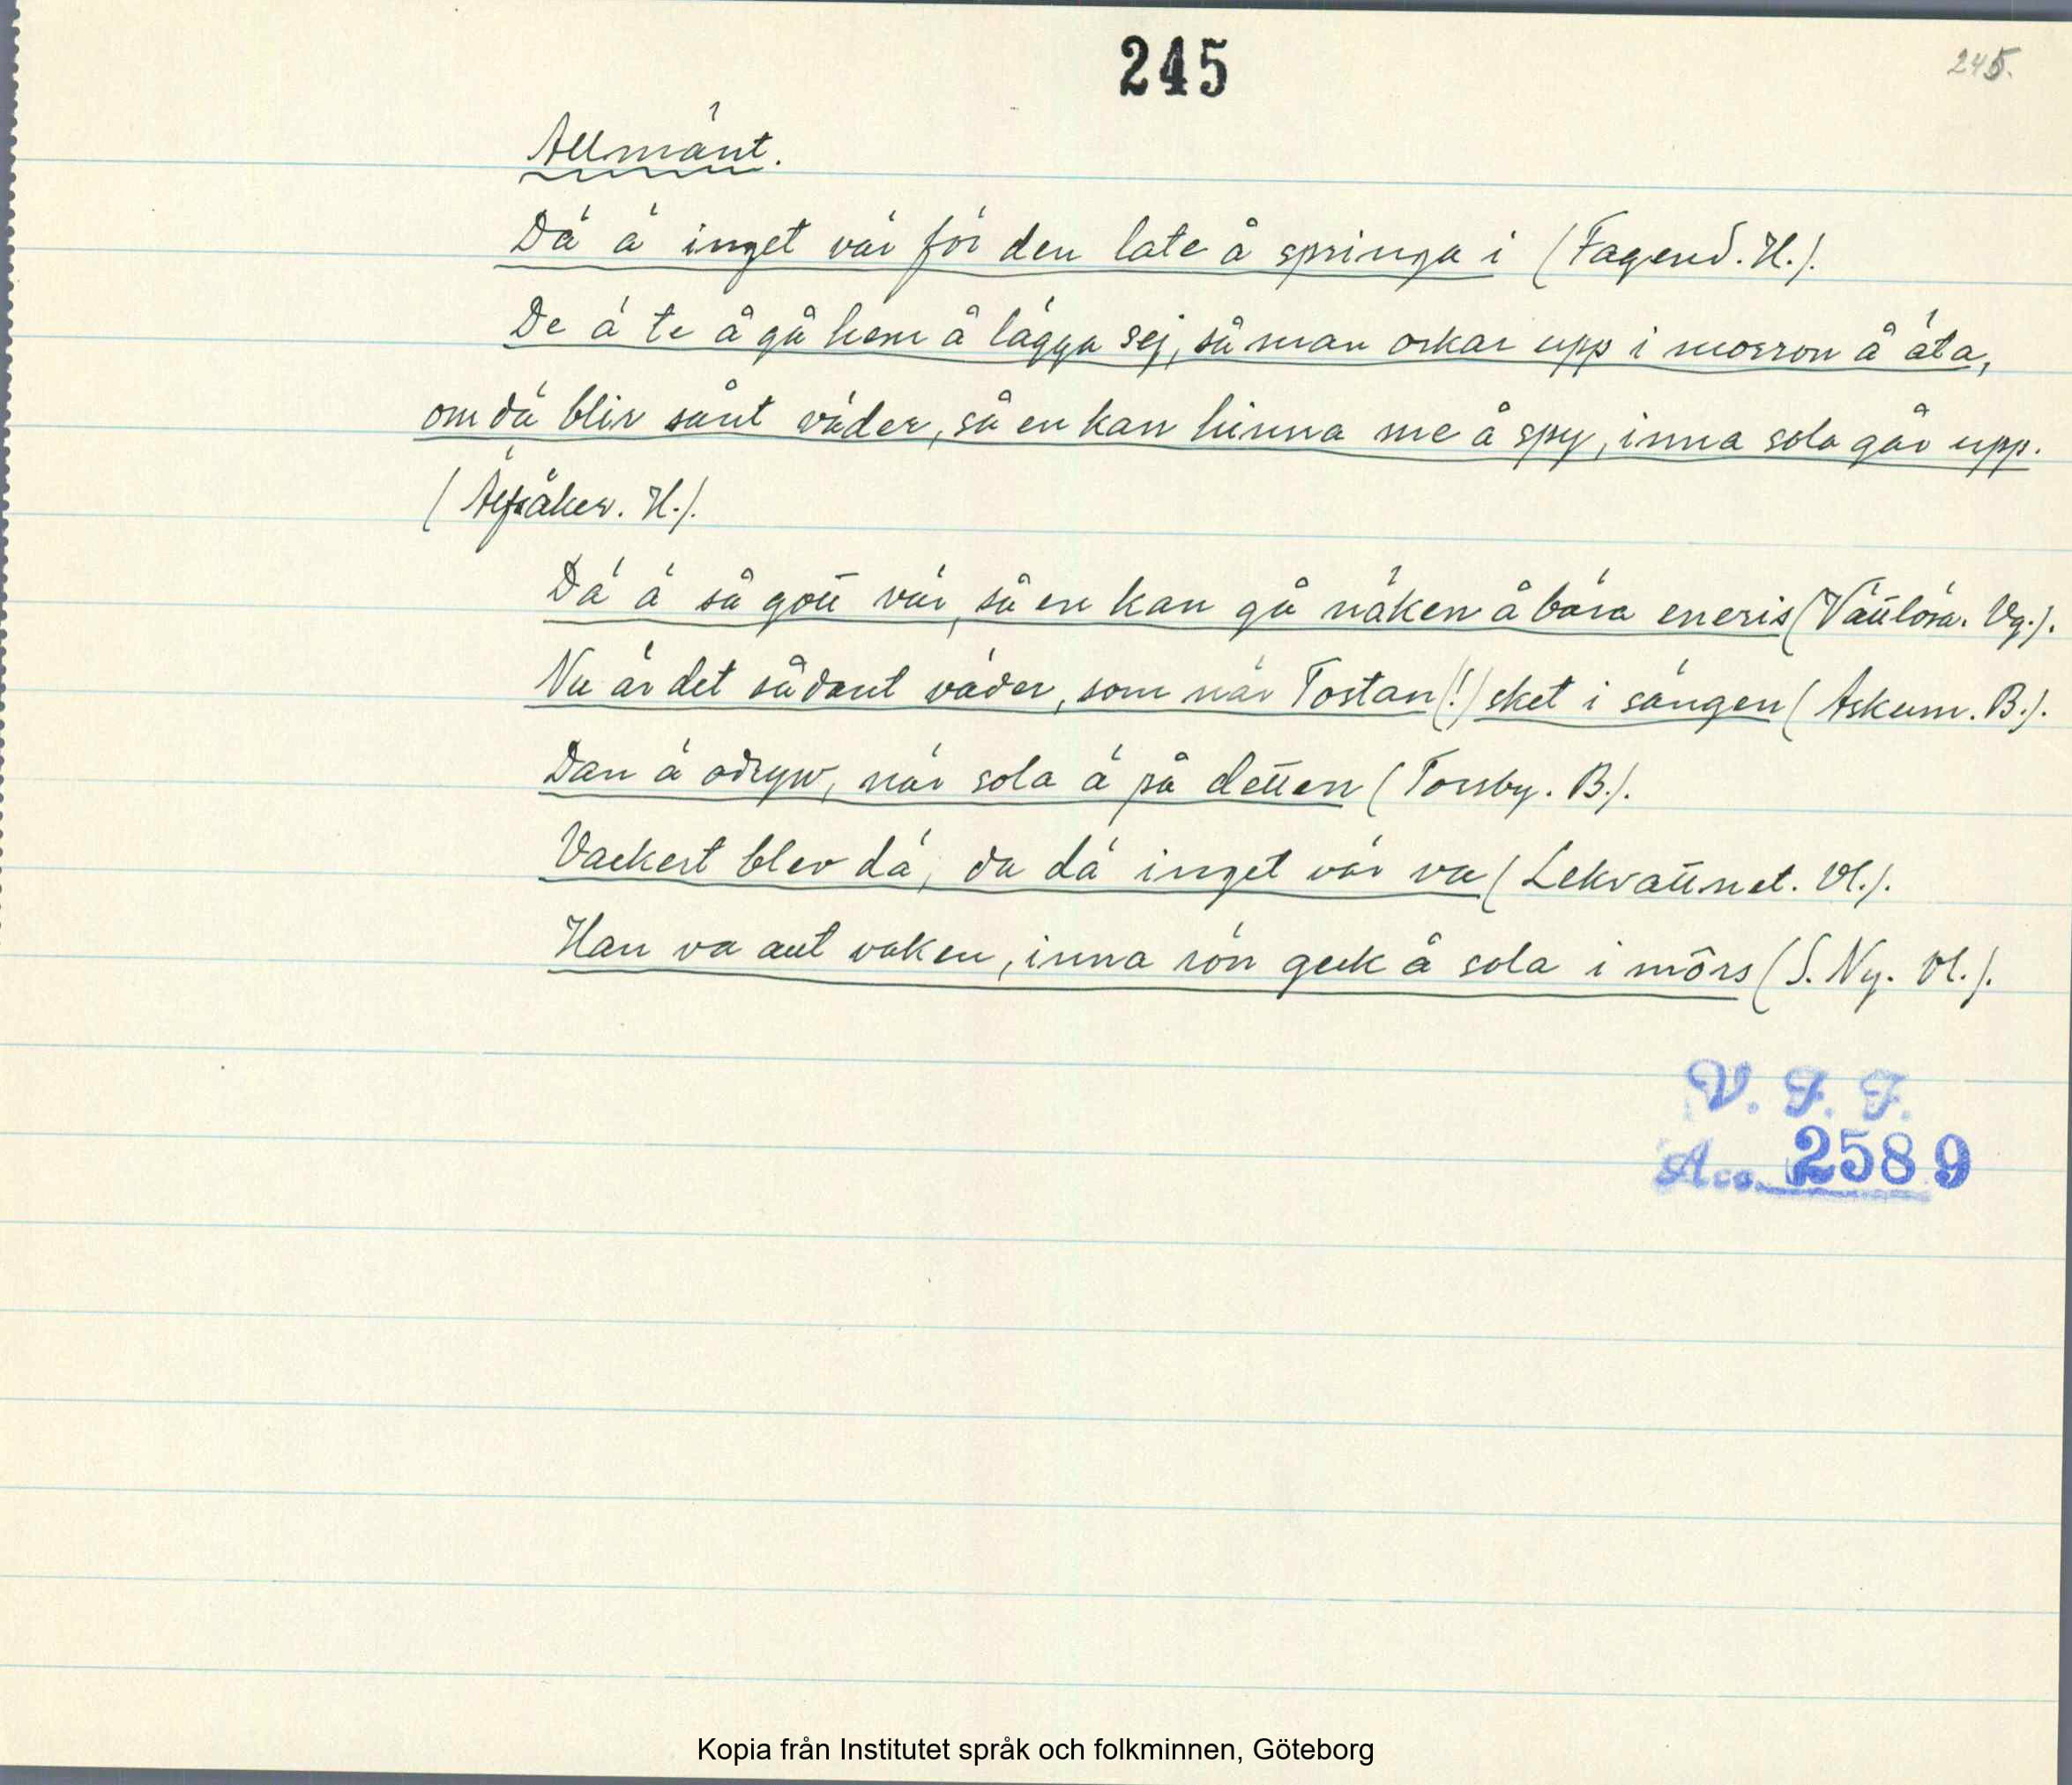 245
245.
Allmänt.
Dä ä inget vär för den late å springa i (Fagered. H.).
De ä te å gå hem å lägga sej, så man orkar upp i morron å äta,
om dä blir sånt väder, så en kan hinna me å spy, inna sola går upp.
(Älfsåker. H.).
Dä ä så gott vär, så en kan gå näken å bära eneris (Vättlösa. Vg.).
Nu är det sådant väder, som när Tostan (!) sket i sängen (Askum. B.).
Dan ä odryw, när sola ä på detten (Torsby. B.).
Vackert blev dä, da dä inget vär va (Lekvattnet. Vl.).
Han va aut vaken, inna rön geck å sola i môrs (S. Ny. Vl.).
V. F. F.
Acc. 2589
Kopia från Institutet språk och folkminnen, Göteborg